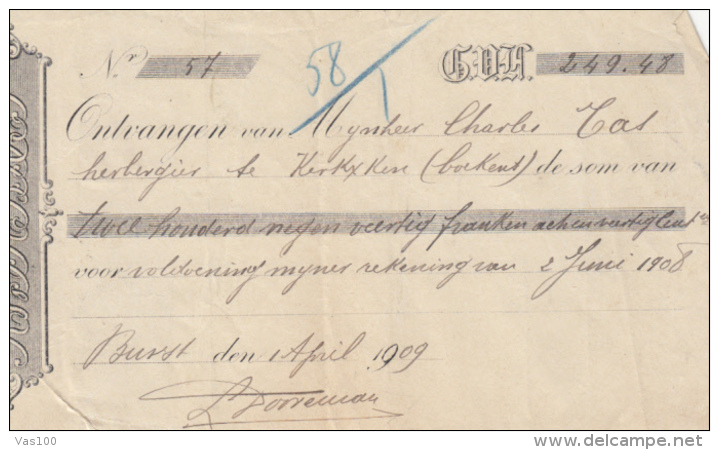 Nr 57 58 G.V.H. 249.48
Ontvangen van Mynheer Charles Cas
herbergier te Kerkxken (boekent) de som van
twee honderd negen veertig franken achenvertig Cent
voor voldoening myner rekening van 2 Juni 1908
Burst den 1 April 1909
Dooreman
Vas100
delcampe.net